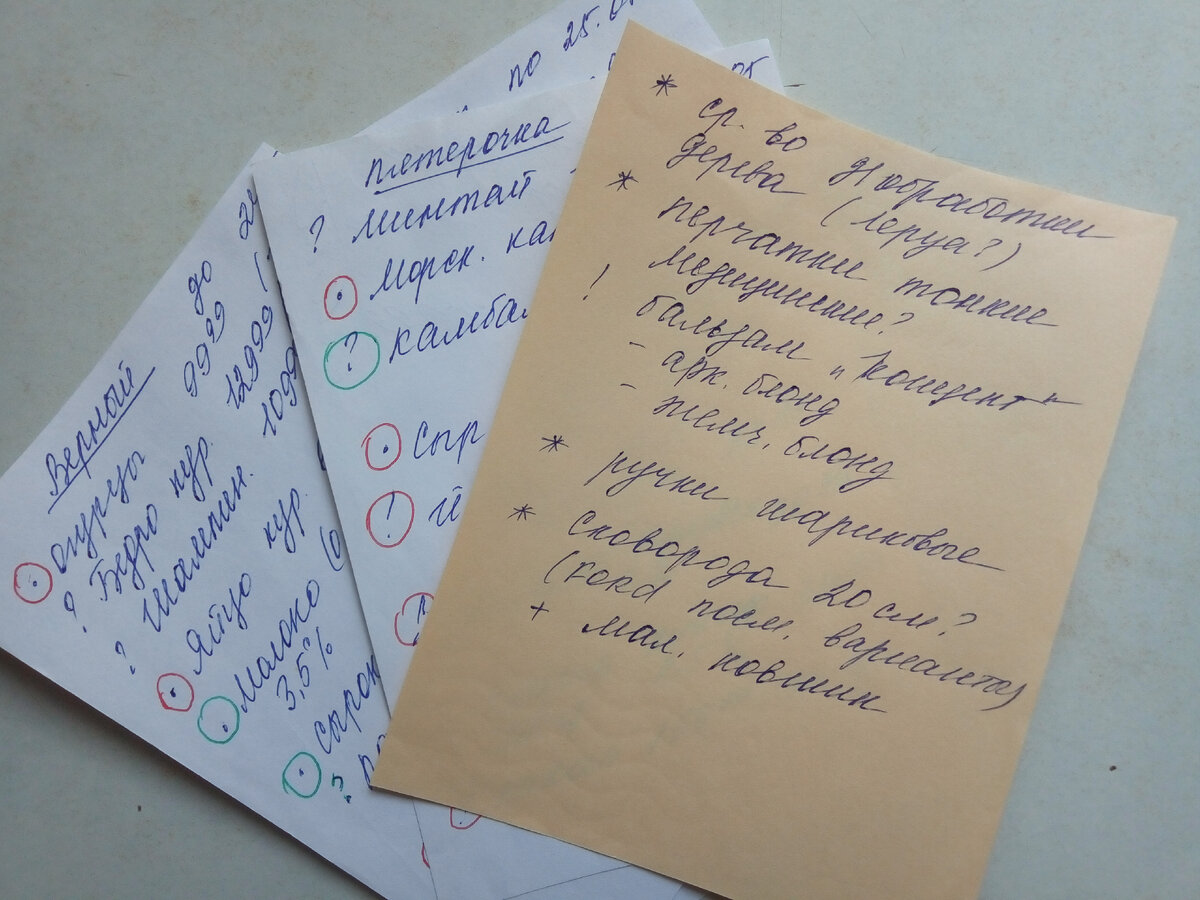 Верный
до
огурцы 9999
? Бедро кур. 12999
? Шампин. 1099
Яйцо кур.
молоко
3,5%
сырок
?
по 25.0
Пятерочка
? минтай
Морск. ка
? камбал
Сыр
!
* ср. во д/обработки
дерева (леруа?)
* перчатки тонкие
медицинские?
! бальзам "Концепт"
- арк. блонд
- жемч. блонд
* ручки шариковые
* сковорода 20 см?
(Ford посм. варианты)
+ мал. ковшик